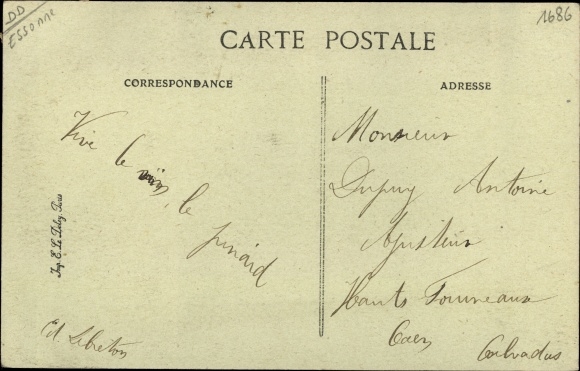 DD
Essonne
1686
CARTE POSTALE
CORRESPONDANCE
ADRESSE
Vive le vin, le
pinard
Ed. Lebreton
Imp. E. Le Deley, Paris
Monsieur
Dupuy Antoine
Ajusteur
Hauts Fourneaux
Caen Calvados